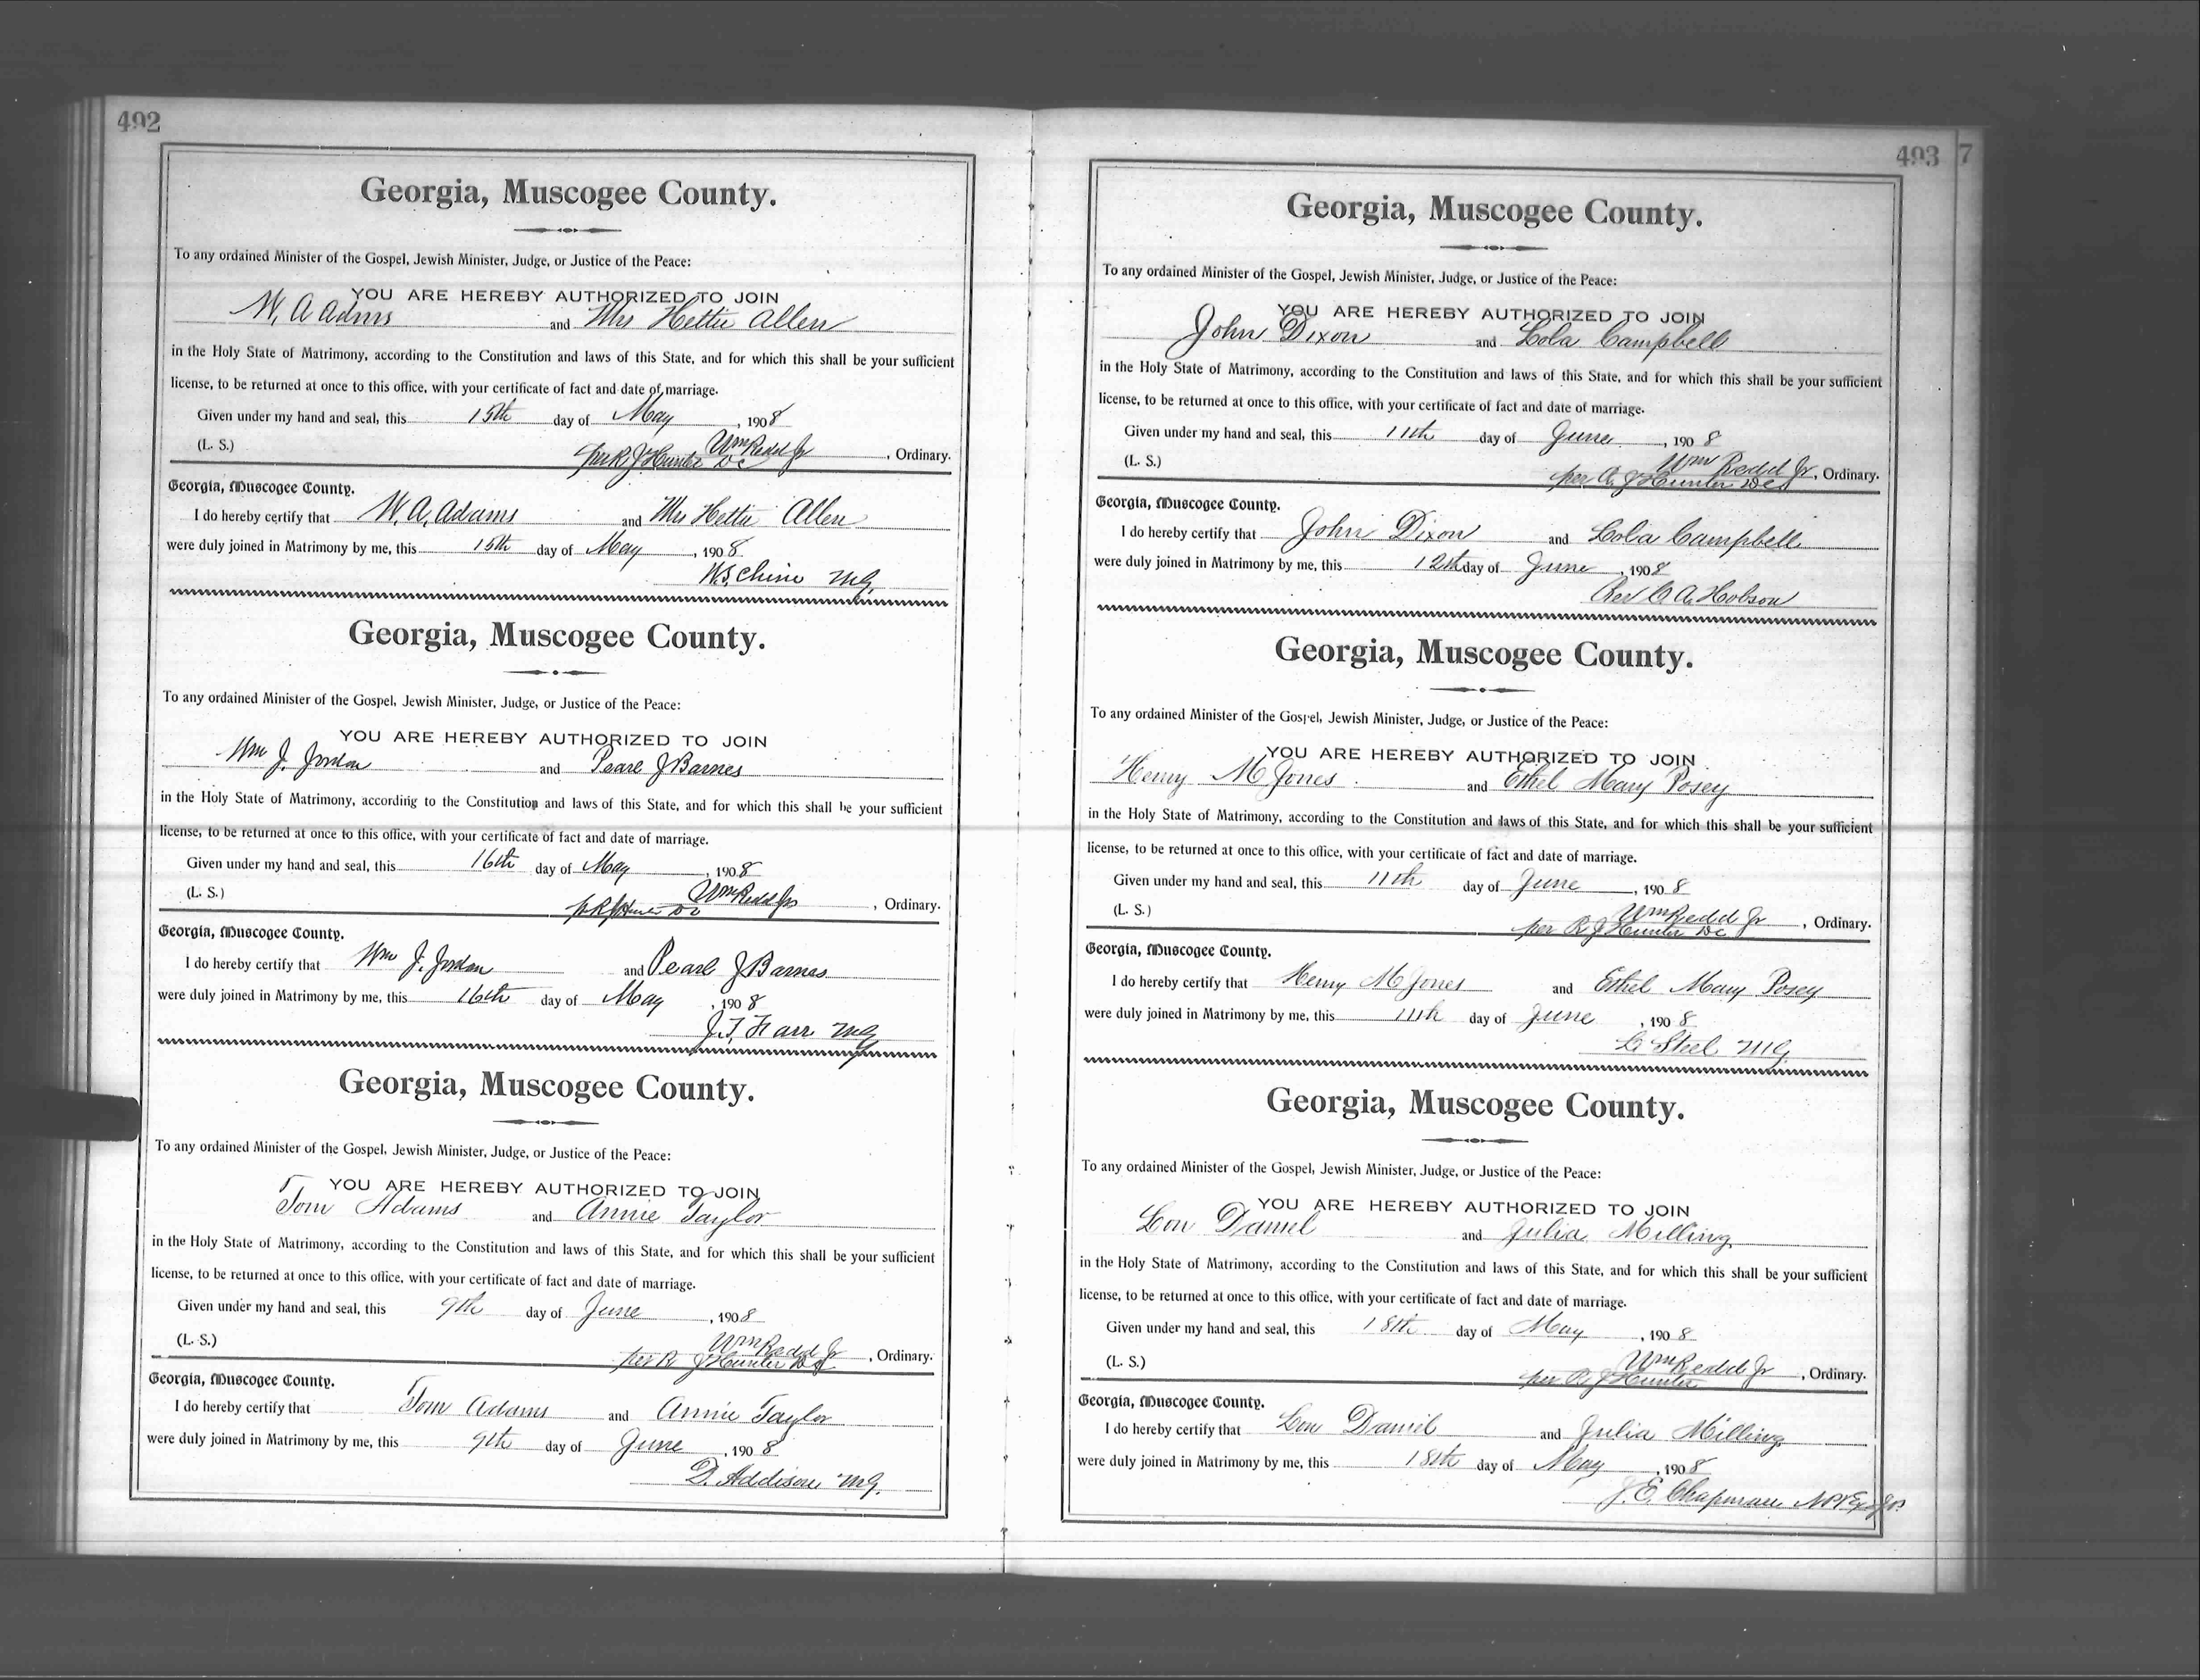 492
Georgia, Muscogee County.
To any ordained Minister of the Gospel, Jewish Minister, Judge, or Justice of the Peace:
YOU ARE HEREBY AUTHORIZED TO JOIN
W. A Adms and Mrs Hettie Allen
in the Holy State of Matrimony, according to the Constitution and laws of this State, and for which this shall be your sufficient
license, to be returned at once to this office, with your certificate of fact and date of marriage.
Given under my hand and seal, this 15th day of May, 1908
Wm Redd Jr
(L. S.) per R J Hunter DC, Ordinary.
Georgia, Muscogee County.
I do hereby certify that W. A. Adams and Mrs Hettie Allen
were duly joined in Matrimony by me, this 15th day of May, 1908
W.S. MG.
Georgia, Muscogee County.
To any ordained Minister of the Gospel, Jewish Minister, Judge, or Justice of the Peace:
YOU ARE HEREBY AUTHORIZED TO JOIN
Wm J. Jordan and Pearl J Barnes
in the Holy State of Matrimony, according to the Constitution and laws of this State, and for which this shall be your sufficient
license, to be returned at once to this office, with your certificate of fact and date of marriage.
Given under my hand and seal, this 16th day of May, 1908
Wm Redd Jr
(L. S.) pr R J Hunter DC, Ordinary.
Georgia, Muscogee County.
I do hereby certify that Wm J. Jordan and Pearl J Barnes
were duly joined in Matrimony by me, this 16th day of May, 1908
J. T. Farr MG
Georgia, Muscogee County.
To any ordained Minister of the Gospel, Jewish Minister, Judge, or Justice of the Peace:
YOU ARE HEREBY AUTHORIZED TO JOIN
Tom Adams and Annie Taylor
in the Holy State of Matrimony, according to the Constitution and laws of this State, and for which this shall be your sufficient
license, to be returned at once to this office, with your certificate of fact and date of marriage.
Given under my hand and seal, this 9th day of June, 1908
Wm Redd Jr
(L. S.) per R J Hunter DC, Ordinary.
Georgia, Muscogee County.
I do hereby certify that Tom Adams and Annie Taylor
were duly joined in Matrimony by me, this 9th day of June, 1908
D. Addison MG.
493 7
Georgia, Muscogee County.
To any ordained Minister of the Gospel, Jewish Minister, Judge, or Justice of the Peace:
YOU ARE HEREBY AUTHORIZED TO JOIN
John Dixon and Lola Campbell
in the Holy State of Matrimony, according to the Constitution and laws of this State, and for which this shall be your sufficient
license, to be returned at once to this office, with your certificate of fact and date of marriage.
Given under my hand and seal, this 11th day of June, 1908
Wm Redd Jr
(L. S.) per R J Hunter DC, Ordinary.
Georgia, Muscogee County.
I do hereby certify that John Dixon and Lola Campbell
were duly joined in Matrimony by me, this 12th day of June, 1908
Rev C A. Hobson
Georgia, Muscogee County.
To any ordained Minister of the Gospel, Jewish Minister, Judge, or Justice of the Peace:
YOU ARE HEREBY AUTHORIZED TO JOIN
Henry M Jones and Ethel Mary Posey
in the Holy State of Matrimony, according to the Constitution and laws of this State, and for which this shall be your sufficient
license, to be returned at once to this office, with your certificate of fact and date of marriage.
Given under my hand and seal, this 11th day of June, 1908
Wm Redd Jr
(L. S.) per R J Hunter DC, Ordinary.
Georgia, Muscogee County.
I do hereby certify that Henry M Jones and Ethel Mary Posey
were duly joined in Matrimony by me, this 11th day of June, 1908
Steel MG.
Georgia, Muscogee County.
To any ordained Minister of the Gospel, Jewish Minister, Judge, or Justice of the Peace:
YOU ARE HEREBY AUTHORIZED TO JOIN
Lon Daniel and Julia Milling
in the Holy State of Matrimony, according to the Constitution and laws of this State, and for which this shall be your sufficient
license, to be returned at once to this office, with your certificate of fact and date of marriage.
Given under my hand and seal, this 18th day of May, 1908
Wm Redd Jr
(L. S.) per R J Hunter, Ordinary.
Georgia, Muscogee County.
I do hereby certify that Lon Daniel and Julia Milling
were duly joined in Matrimony by me, this 18th day of May, 1908
J. E. Chapman NP & Ex of JP